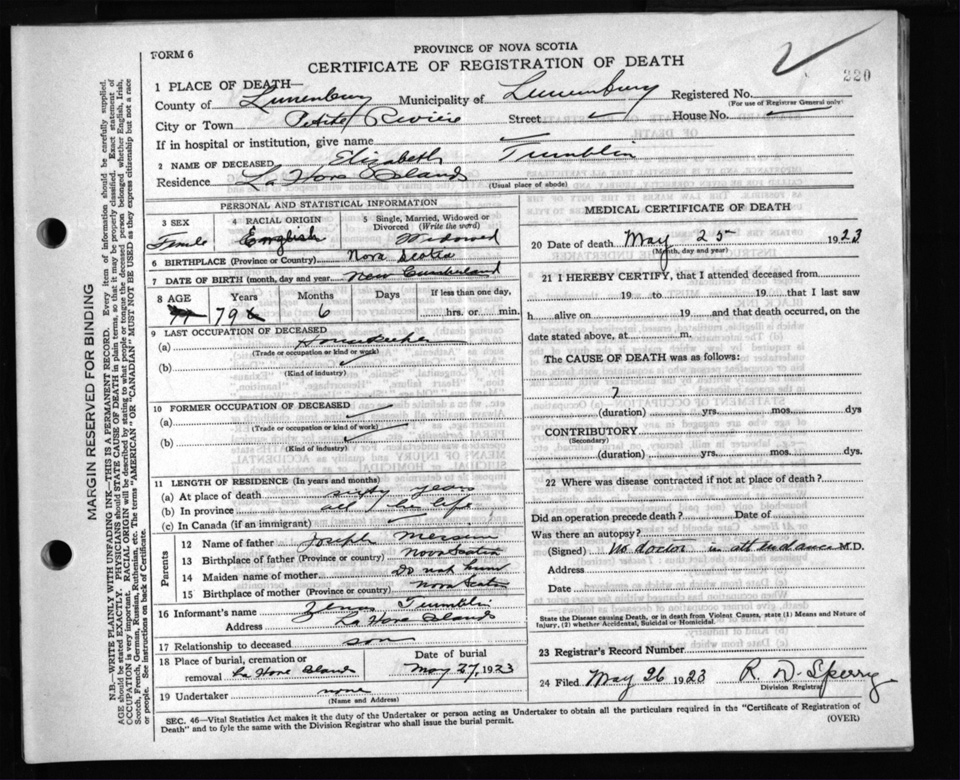 FORM 6
PROVINCE OF NOVA SCOTIA
CERTIFICATE OF REGISTRATION OF DEATH
220
1 PLACE OF DEATH—
County of Lunenburg Municipality of Lunenburg Registered No.
(For use of Registrar General only)
City or Town Petite Riviere Street ✓ House No. ✓
If in hospital or institution, give name ✓
2 NAME OF DECEASED Elizabeth Trumblin
Residence La Have Islands
(Usual place of abode)
PERSONAL AND STATISTICAL INFORMATION
3 SEX 4 RACIAL ORIGIN 5 Single, Married, Widowed or Divorced (Write the word)
Female English Widowed
6 BIRTHPLACE (Province or Country) Nova Scotia
7 DATE OF BIRTH (month, day and year) New Cumberland
8 AGE Years Months Days If less than one day,
79 6 hrs. or min.
9 LAST OCCUPATION OF DECEASED
(a) Housekeeper
(Trade or occupation or kind or work)
(b) ✓
(Kind of industry)
10 FORMER OCCUPATION OF DECEASED
(a) ✓
(Trade or occupation or kind of work)
(b) ✓
(Kind of industry)
11 LENGTH OF RESIDENCE (In years and months)
(a) At place of death sixty years
(b) In province all her life
(c) In Canada (if an immigrant) ✓
Parents
12 Name of father Joseph
13 Birthplace of father (Province or country) Nova Scotia
14 Maiden name of mother Do not know
15 Birthplace of mother (Province or country) Nova Scotia
16 Informant's name Zenas Trumblin
Address La Have Islands
17 Relationship to deceased son
18 Place of burial, cremation or removal La Have Islands Date of burial May 27, 1923
19 Undertaker none
(Name and Address)
MEDICAL CERTIFICATE OF DEATH
20 Date of death May 25 1923
(Month, day and year)
21 I HEREBY CERTIFY, that I attended deceased from
19 to 19 that I last saw
h alive on 19 and that death occurred, on the
date stated above, at m.
The CAUSE OF DEATH was as follows:
?
(duration) yrs. mos. dys
CONTRIBUTORY
(Secondary)
(duration) yrs. mos. dys.
22 Where was disease contracted if not at place of death?
Did an operation precede death? Date of
Was there an autopsy?
(Signed) No doctor in attendance M.D.
Address
Date
State the Disease causing Death, or in death from Violent Causes, state (1) Means and Nature of Injury, (2) whether Accidental, Suicidal or Homicidal.
23 Registrar's Record Number
24 Filed May 26 1923 R. D. Sperry
Division Registrar
SEC. 46—Vital Statistics Act makes it the duty of the Undertaker or person acting as Undertaker to obtain all the particulars required in the "Certificate of Registration of
Death" and to fyle the same with the Division Registrar who shall issue the burial permit. (OVER)
MARGIN RESERVED FOR BINDING
N.B.—WRITE PLAINLY WITH UNFADING INK—THIS IS A PERMANENT RECORD. Every item of information should be carefully supplied.
AGE should be stated EXACTLY. PHYSICIANS should STATE CAUSE OF DEATH in plain terms, so that it may be properly classified. Exact statement of
OCCUPATION is very important. RACIAL ORIGIN will be described by stating to what people or tongue the deceased person belonged whether English, Irish,
Scotch, French, German, Russian, Ruthenian, etc. The terms "AMERICAN" OR "CANADIAN" MUST NOT BE USED as they express citizenship but not a race
or people. See instructions on back of Certificate.